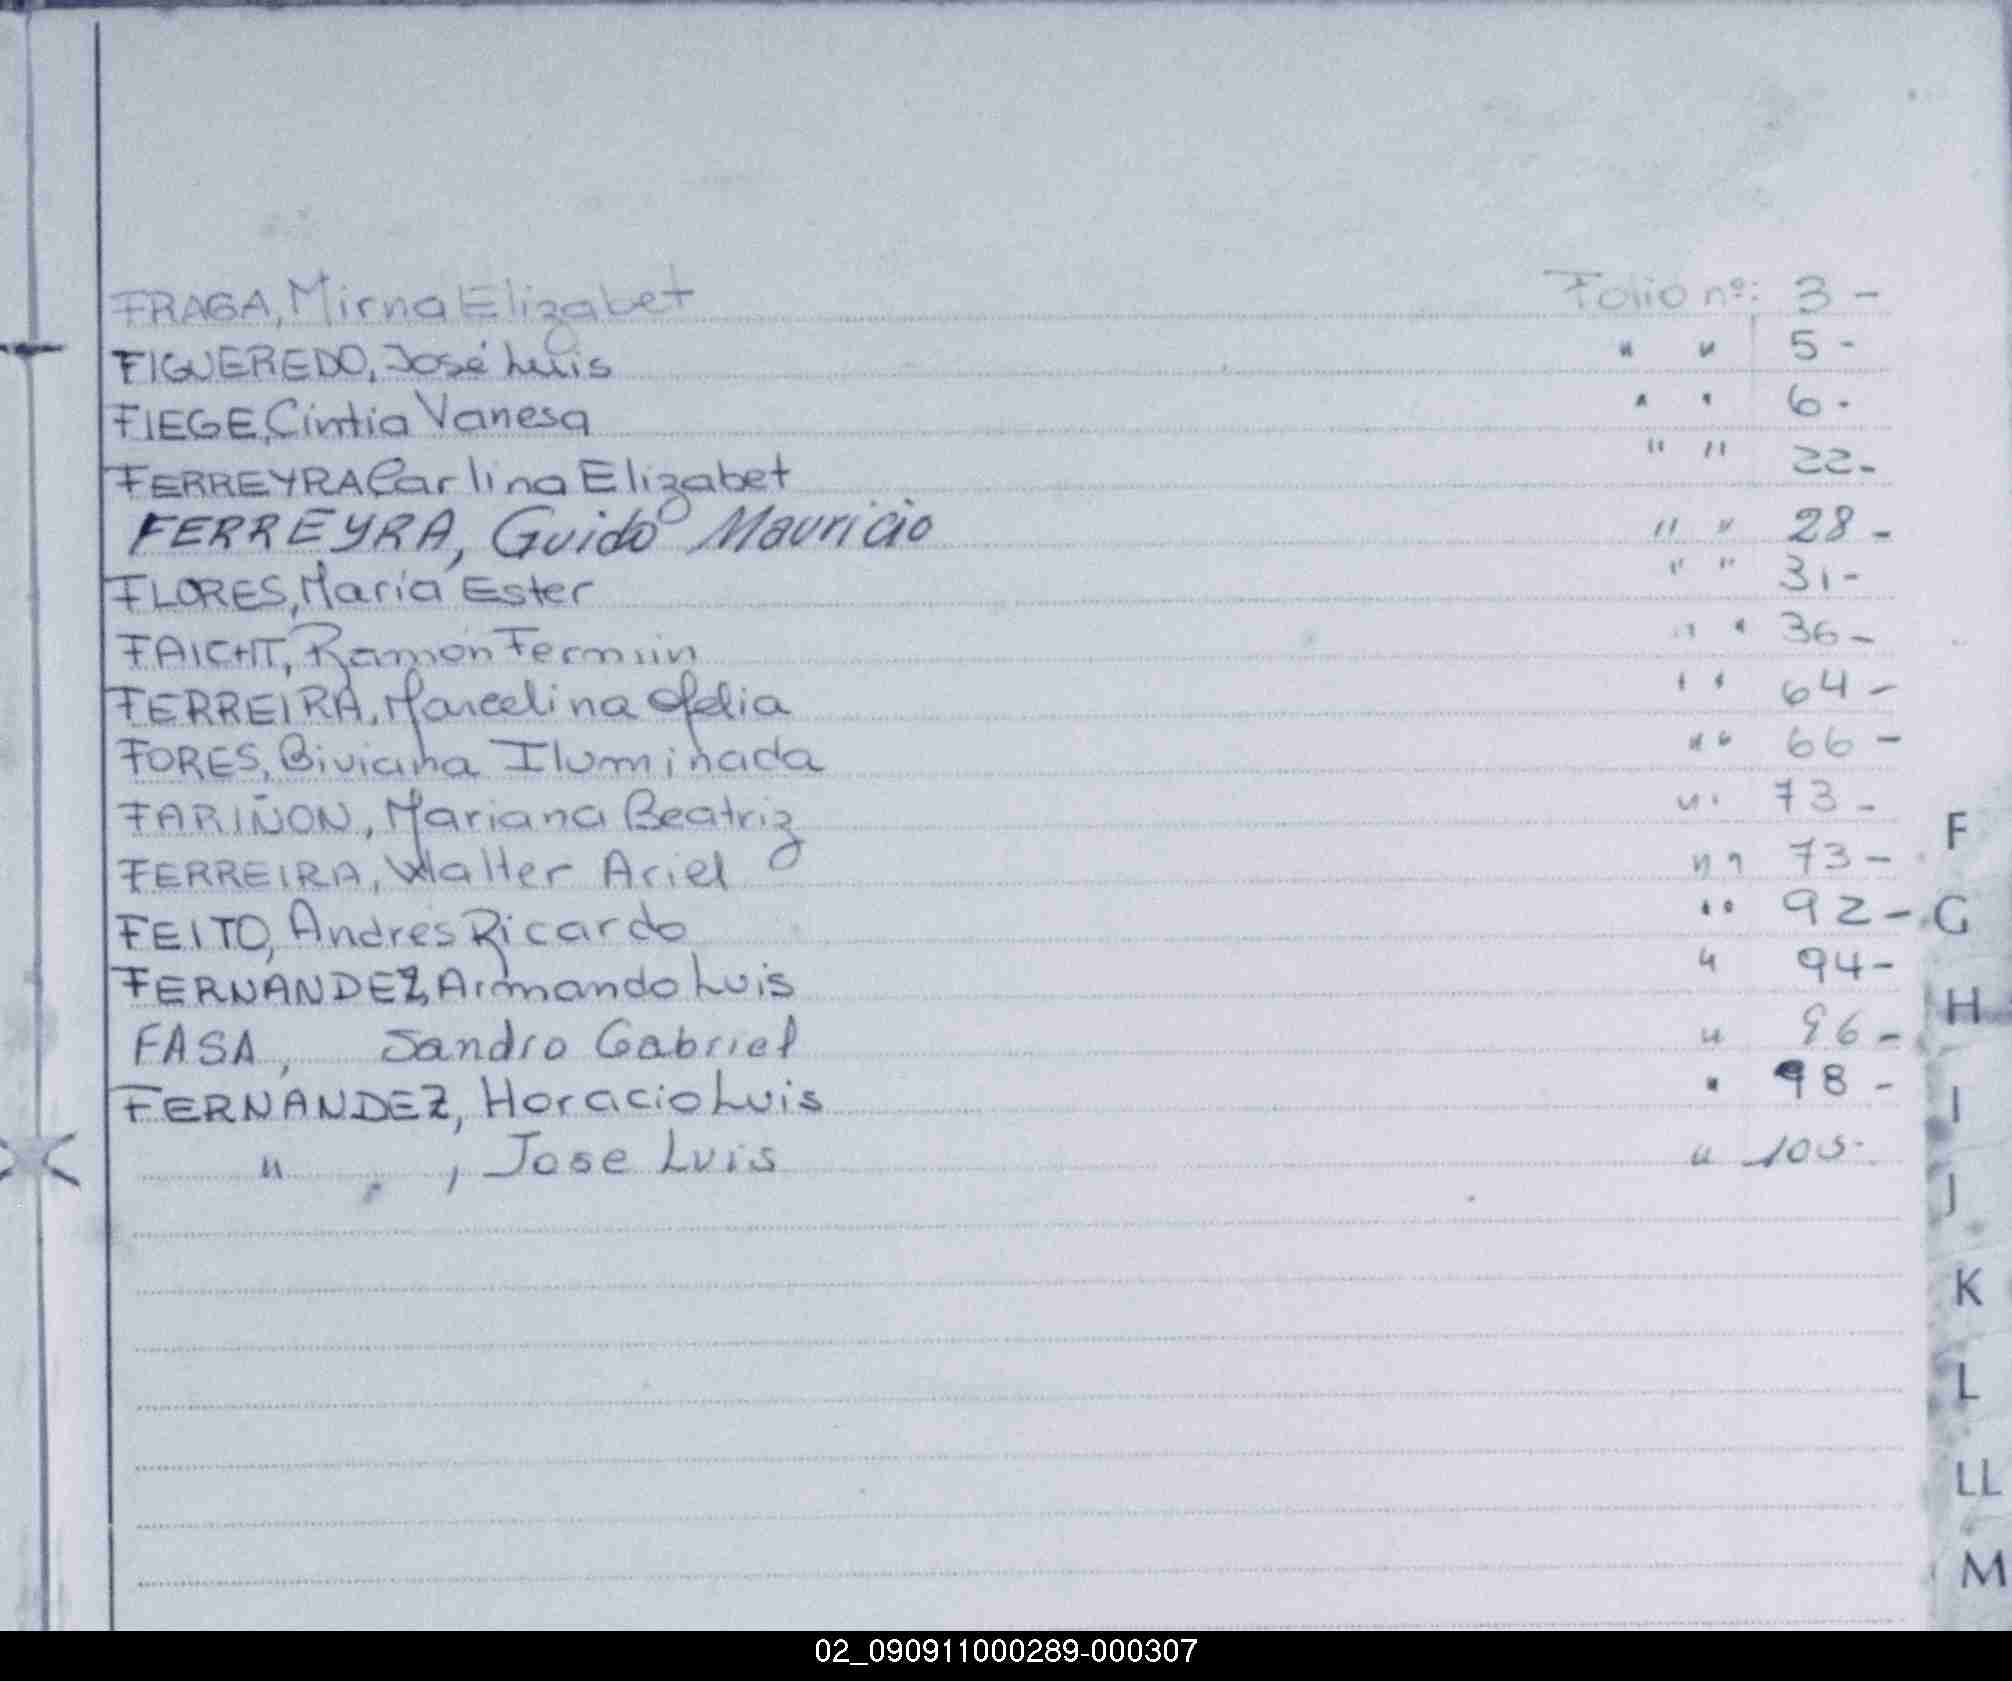 FRAGA, Mirna Elizabet Folio nº: 3 -
FIGUEREDO, José Luis " " 5 -
FIEGE, Cintia Vanesa " " 6 -
FERREYRA Carlina Elizabet " " 22 -
FERREYRA, Guido Mauricio " " 28 -
FLORES, María Ester " " 31 -
FAICHT, Ramón Fermin " " 36 -
FERREIRA, Marcelina Ofelia " " 64 -
FORES, Biviana Iluminada " " 66 -
FARIÑON, Mariana Beatriz " " 73 -
FERREIRA, Walter Ariel " " 73 -
FEITO, Andres Ricardo " " 92 -
FERNANDEZ, Armando Luis " 94 -
FASA, Sandro Gabriel " 96 -
FERNANDEZ, Horacio Luis " 98 -
" , Jose Luis " 105 -
F
G
H
I
J
K
L
LL
M
02_090911000289-000307